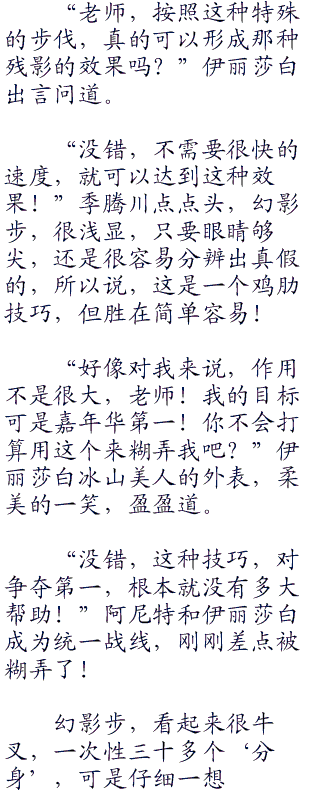 “老师，按照这种特殊
的步伐，真的可以形成那种
残影的效果吗？”伊丽莎白
出言问道。
“没错，不需要很快的
速度，就可以达到这种效
果！”季腾川点点头，幻影
步，很浅显，只要眼睛够
尖，还是很容易分辨出真假
的，所以说，这是一个鸡肋
技巧，但胜在简单容易！
“好像对我来说，作用
不是很大，老师！我的目标
可是嘉年华第一！你不会打
算用这个来糊弄我吧？”伊
丽莎白冰山美人的外表，柔
美的一笑，盈盈道。
“没错，这种技巧，对
争夺第一，根本就没有多大
帮助！”阿尼特和伊丽莎白
成为统一战线，刚刚差点被
糊弄了！
幻影步，看起来很牛
叉，一次性三十多个‘分
身’，可是仔细一想